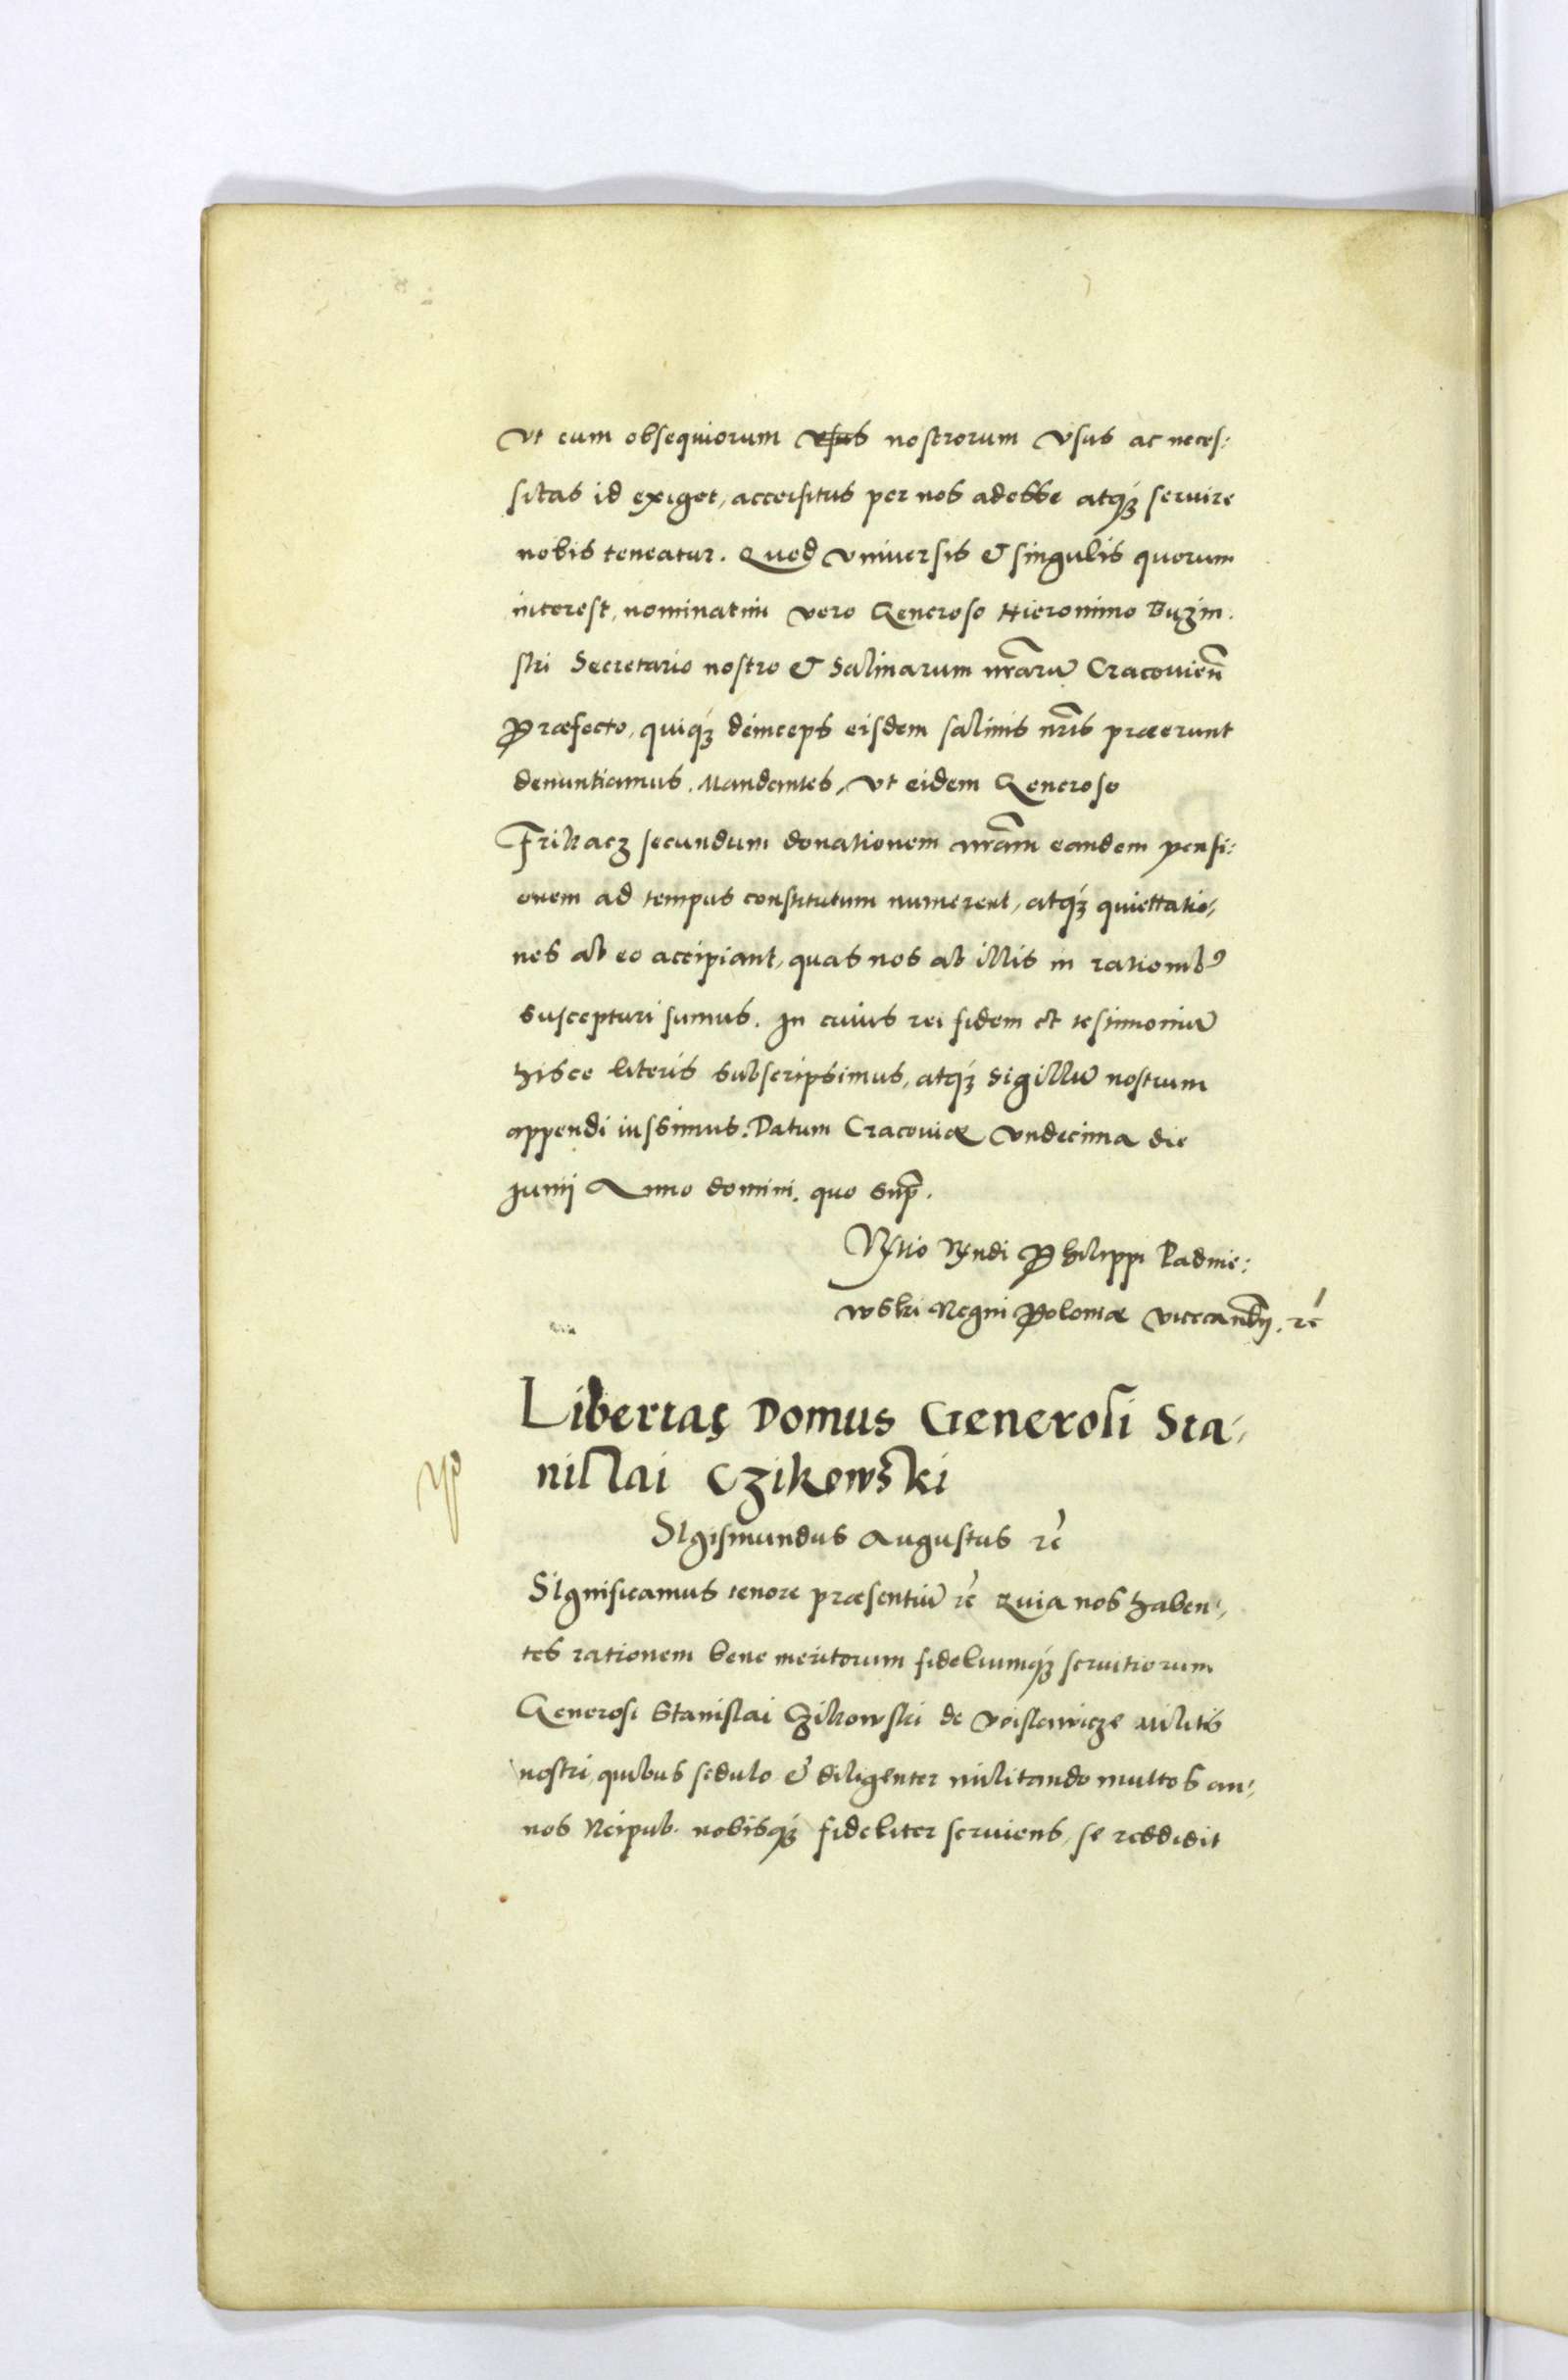 Vt cum obsequiorum usus nostrorum vsus ac neces:
sitas id exiget, accersitus per nos adesse atq́ꝫ seruire
nobis teneatur. Quod vniuersis & singulis quorum
interest, nominatim vero Generoso Hieronimo Buzin.
ski Secretario nostro & Salinarum nr̃arũ Cracouien̄
Præfecto, quiq́ꝫ deinceps eisdem salinis nr̃is præerunt
denuntiamus. Mandantes, Vt eidem Generoso
Frikacz secundum donationem nr̃am eandem pensi:
onem ad tempus constitutum numerent, atq́ꝫ quiettatio,
nes ab eo accipiant, quas nos ab illis in rationibꝰ
suscepturi sumus. In cuius rei fidem et testimoniũ
hisce literis subscripsimus, atq́ꝫ sigillũ nostrum
appendi iussimus. Datum Cracouiæ vndecima die
Junij Anno domini. quo sup̃.
Rl̃tio Rṽndi Philippi Padnie:
wski Regni Poloniæ vicecancel̃lij. rć
Libertas Domus Generosi Sta,
nislai Czikowski
SIgismundus Augustus rć
SIgnificamus tenore præsentiũ rć Quia nos haben,
tes rationem bene meritorum fideliumq́ꝫ seruitiorum
Generosi Stanislai Czikowski de Voislawicze Militis
nostri, quibus sedulo & diligenter militando multos an,
nos Reipub. nobisq́ꝫ fideliter seruiens, se reddidit